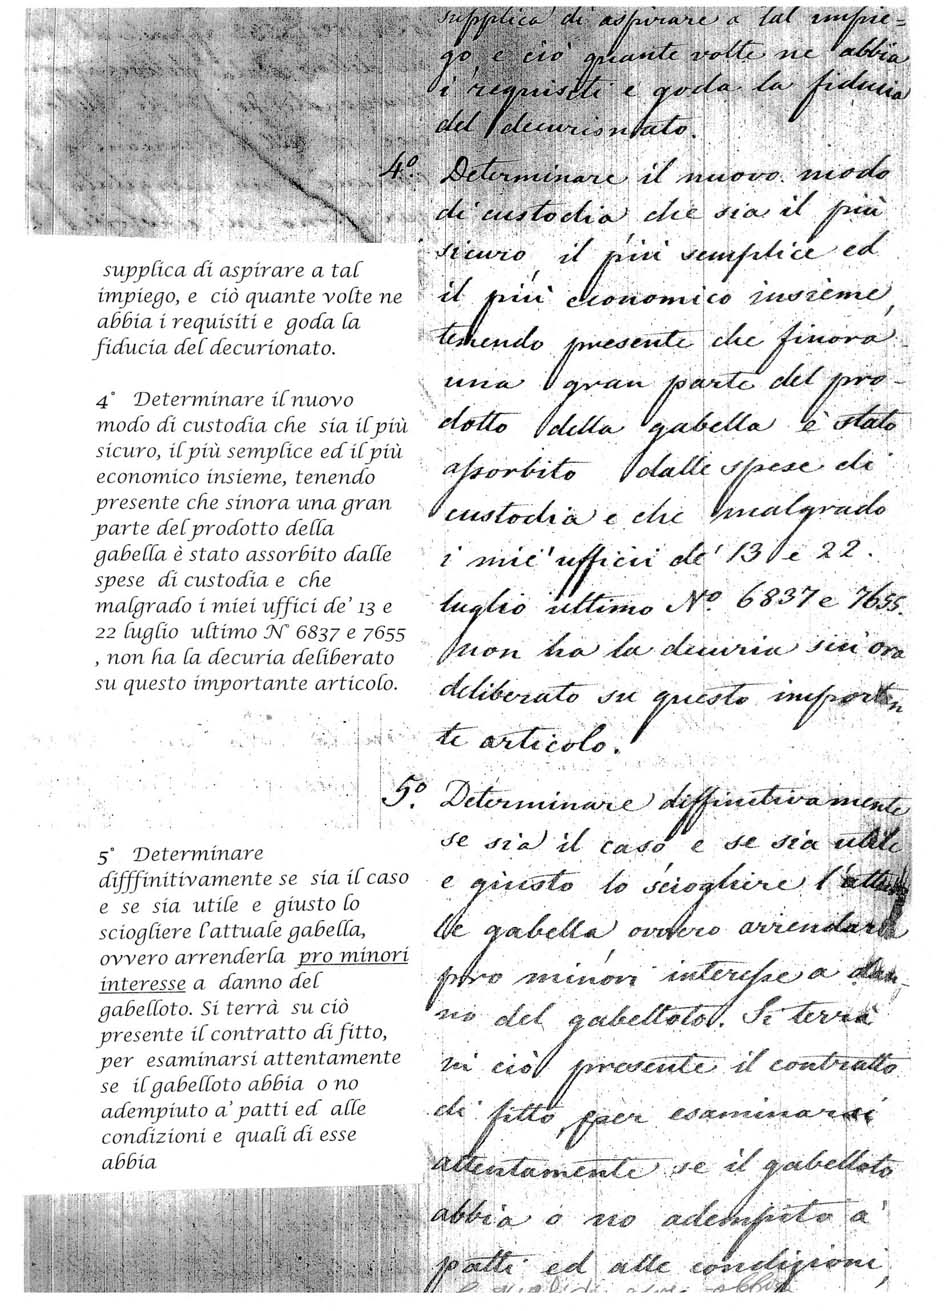 supplica di aspirare a tal impie=
go, e ciò quante volte ne abbia
i requisiti e goda la fiducia
del decurionato.
4º. Determinare il nuovo modo
di custodia che sia il più
sicuro il più semplice ed
il più economico insieme,
tenendo presente che finora
una gran parte del pro-
dotto della gabella è stato
assorbito dalle spese di
custodia e che malgrado
i miei uffici de' 13 e 22.
luglio ultimo Nº. 6837 e 7655.
non ha la decuria sin'ora
deliberato su questo importan
te articolo.
5º. Determinare diffinitivamente
se sia il caso e se sia utile
e giusto lo sciogliere l'attua
le gabella ovvero arrendarla
pro minori interesse a dan-
no del gabelloto. Si terrà
su ciò presente il contratto
di fitto, per esaminarsi
attentamente se il gabelloto
abbia o no adempito a'
patti ed alle condizioni,
supplica di aspirare a tal
impiego, e ciò quante volte ne
abbia i requisiti e goda la
fiducia del decurionato.
4° Determinare il nuovo
modo di custodia che sia il più
sicuro, il più semplice ed il più
economico insieme, tenendo
presente che sinora una gran
parte del prodotto della
gabella è stato assorbito dalle
spese di custodia e che
malgrado i miei uffici de' 13 e
22 luglio ultimo N° 6837 e 7655
, non ha la decuria deliberato
su questo importante articolo.
5° Determinare
difffinitivamente se sia il caso
e se sia utile e giusto lo
sciogliere l'attuale gabella,
ovvero arrenderla pro minori
interesse a danno del
gabelloto. Si terrà su ciò
presente il contratto di fitto,
per esaminarsi attentamente
se il gabelloto abbia o no
adempiuto a' patti ed alle
condizioni e quali di esse
abbia